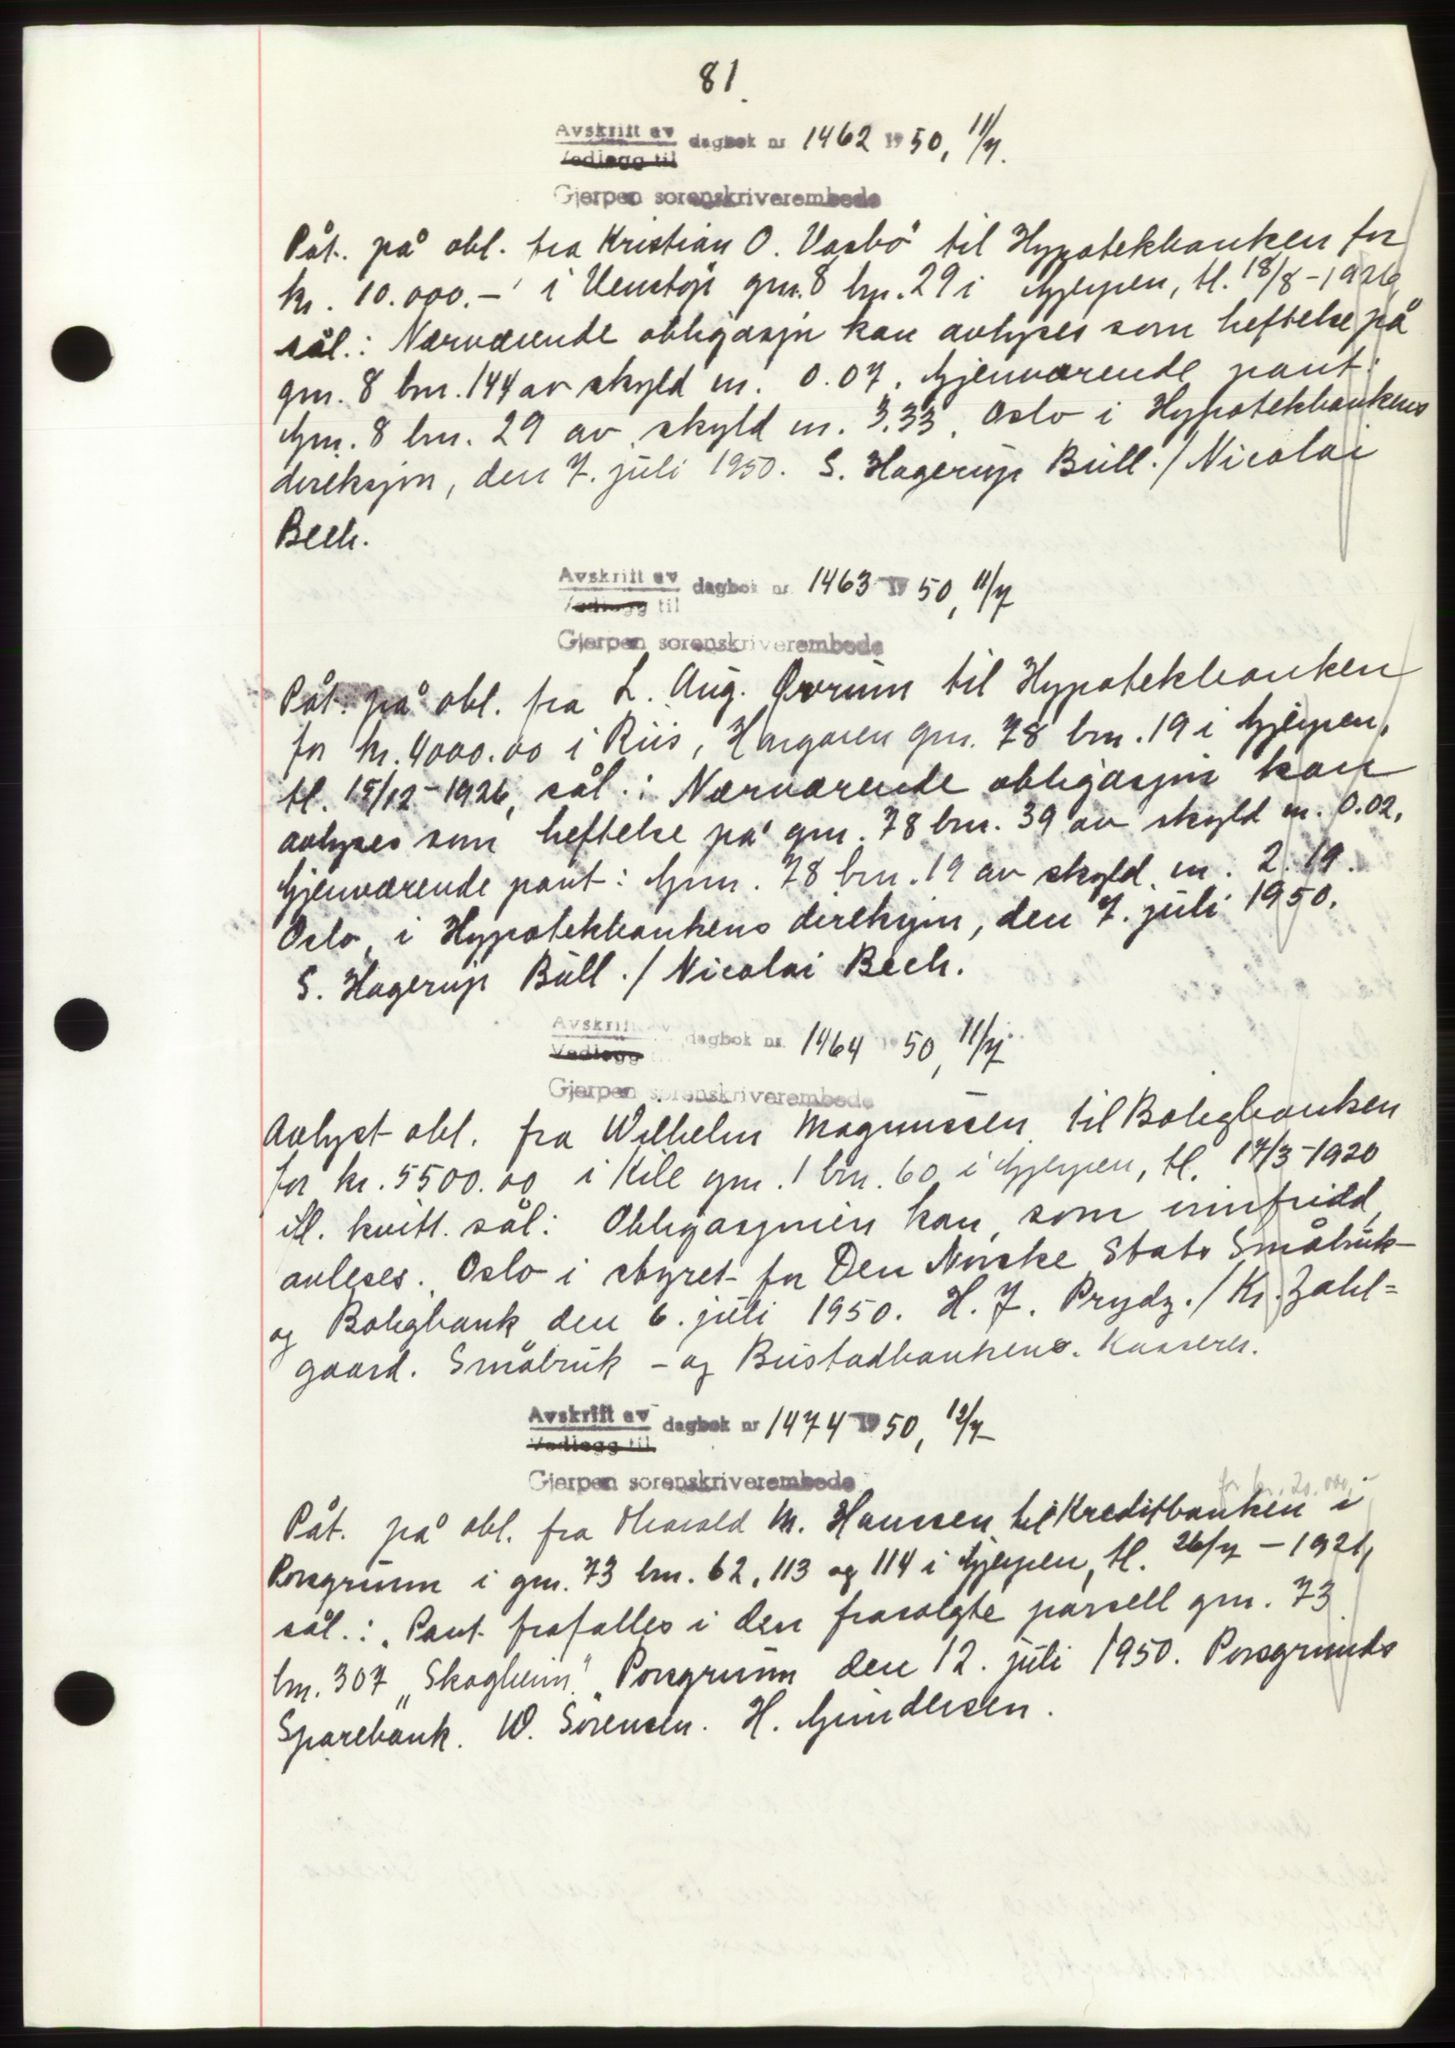 81.
Avskrift av dagbok nr 1462 1950, 11/7.
Vedlegg til
Gjerpen sorenskriverembede
Påt. på obl. fra Kristian O. Vasbö til Hypotekbanken for
kr. 10.000.- i Venstöp gnr. 8 bnr. 29 i Gjerpen, tl. 18/8-1926,
sål.: Nærværende obligasjn kan avlyses som heftelse på
gnr. 8 bnr. 144 av skyld m. 0.07. Gjenværende pant:
Gnr. 8 bnr. 29 av skyld m. 3.33. Oslo i Hypotekbankens
direksjon, den 7. juli 1950. S. Hagerup Bull./ Nicolai
Bech.
Avskrift av dagbok nr 1463 1950, 11/7
Vedlegg til
Gjerpen sorenskriverembede
Påt. på obl. fra L. Aug. Qvrum til Hypotekbanken
for kr. 4000.00 i Riis, gnr. 78 bnr. 19 i Gjerpen,
tl. 15/12-1926, sål.: Nærværende obligasjon kan
avlyses som heftelse på gnr. 78 bnr. 39 av skyld m. 0.02.
Gjenværende pant: Gnr. 78 bnr. 19 av skyld m. 2.19.
Oslo, i Hypotekbankens direksjon, den 7. juli 1950.
S. Hagerup Bull./ Nicolai Bech.
Avskrift av dagbok nr. 1464 1950, 11/7.
Vedlegg
Gjerpen sorenskriverembede
Avlyst obl. fra Wilhelm Magnussen til Boligbanken
for kr. 5500.00 i Kile gnr. 1 bnr. 60 i Gjerpen, tl. 17/3-1920
ifl. kvitt. sål: Obligasjonen kan, som innfridd,
avleses. Oslo i styret for Den Norske Stats Småbruk-
og Boligbank, den 6. juli 1950. H. J. Prydz./ Kr. Zahl=
gaard. Småbruk - og Bustadbankens. Kasserer.
Avskrift av dagbok nr 1474 1950, 12/7
Vedlegg til
Gjerpen sorenskriverembede
for kr. 20.000,-
Påt. på obl. fra Harald M. Hanssen til Kreditbanken i
Porsgrunn i gnr. 73 bnr. 62, 113 og 114 i Gjerpen, tl. 26/7-1921,
sål.: „Pant frafalles i den frasolgte parsell gnr. 73
bnr. 307 „Skogheim". Porsgrunn den 12. juli 1950. Porsgrunds
Sparebank. W. Sörensen. H. Gundersen.